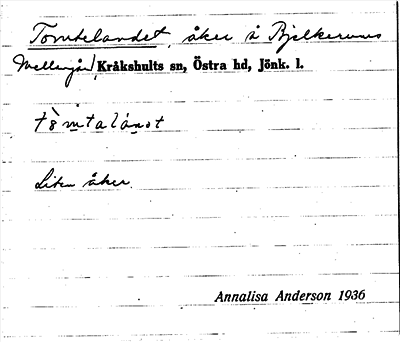 Tomtelandet, åker å Bjelkerums
Mellangård, Kråkshults sn, Östra hd, Jönk. l.
tòmtalánət
Liten åker.
Annalisa Anderson 1936